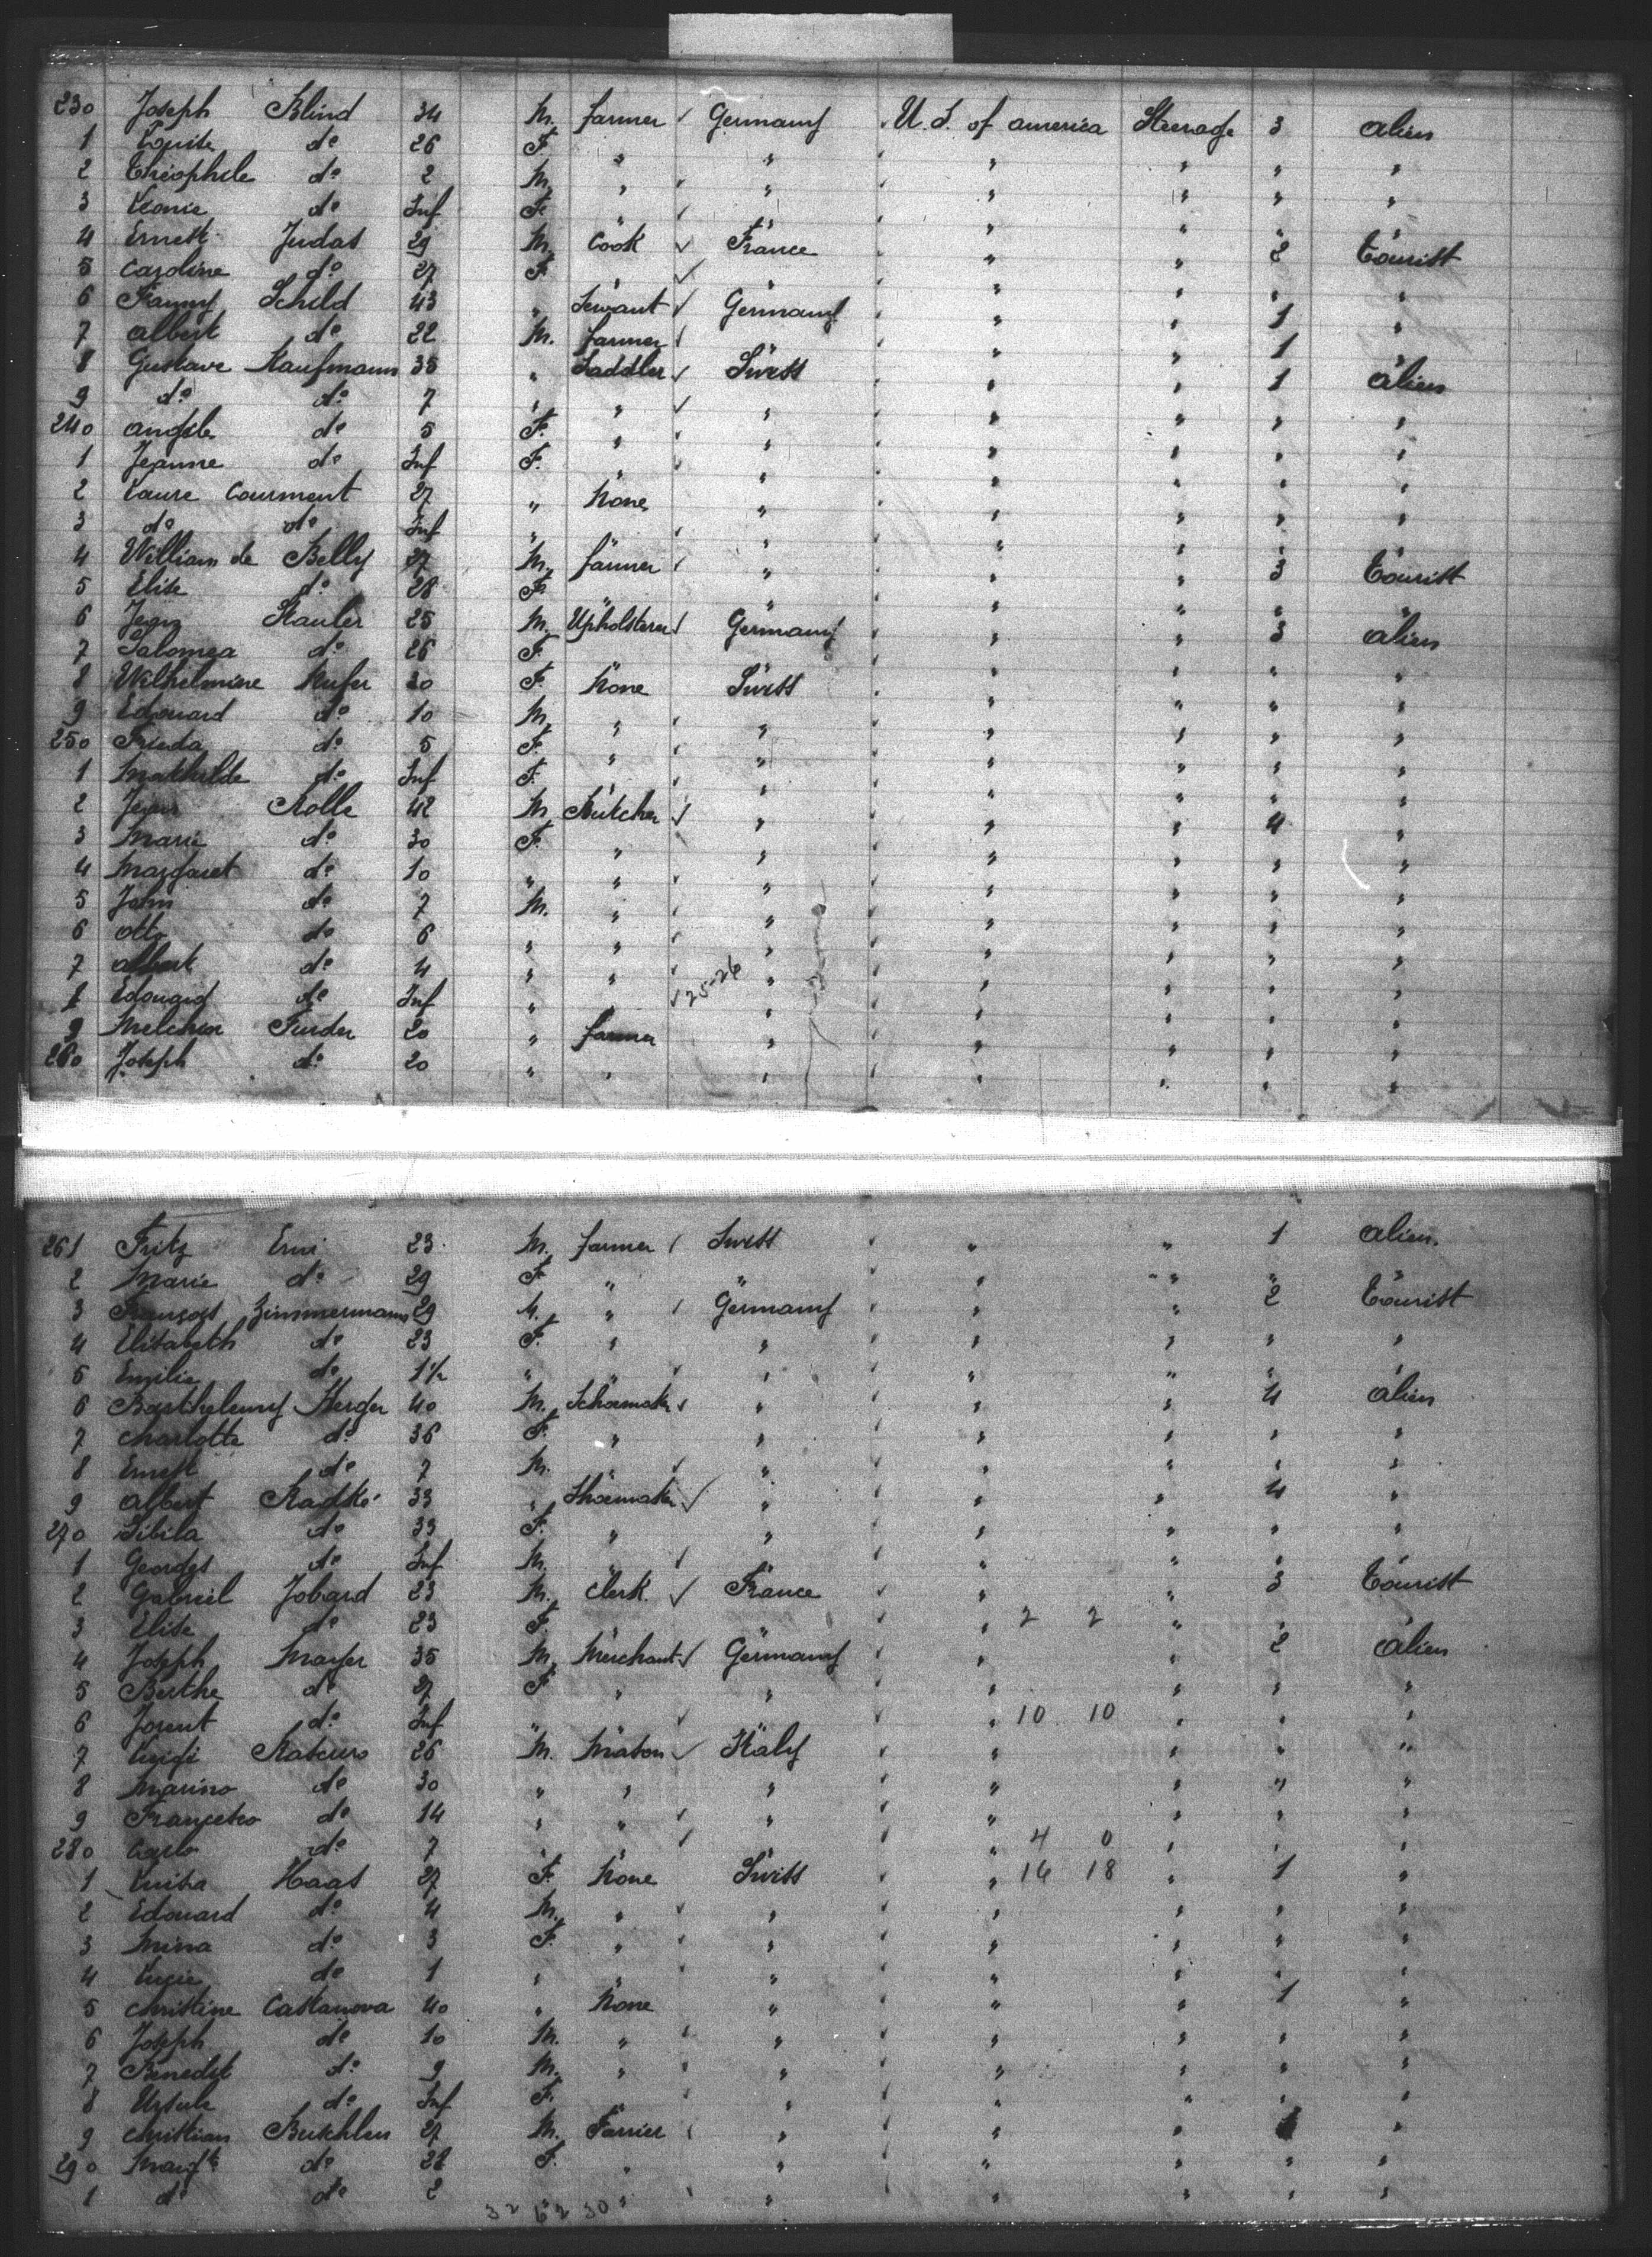 230 Joseph Blind 34 M. farmer Germany U.S. of america Steerage 3 alien
1 Louise do 26 F. " " " " " "
2 Théophile do 2 M. " " " " " "
3 Leonie do Inf F. " " " " "
4 Ernest Judas 29 M. Cook France " " 2 Tourist
5 Caroline do 27 F. " " " " " "
6 Fanny Schild 43 " Servant Germany " " 1 "
7 albert do 22 M. farmer " " 1 "
8 Gustave Kaufmann 35 " Saddler Swiss " " 1 alien
9 do do 7 " " " " " " "
240 angèle do 5 F. " " " " " "
1 Jeanne do Inf F. " " " " " "
2 Laure Courment 27 " None " " " " "
3 do do Inf " " " " " " "
4 William de Belly 27 M. farmer " " " 3 Tourist
5 Elise do 28 F. " " " " " "
6 Jean Stauler 25 M. Upholsterer Germany " " 3 alien
7 Salomea do 26 F. " " " "
8 Wilhelmine Kufer 30 F. None Swiss " " " "
9 Edouard do 10 M. " " " " " "
250 Frieda do 5 F. " " " " " "
1 Mathilde do Inf F. " " " " " "
2 Jean Rolle 42 M. Butcher " " " 4 "
3 Marie do 30 F. " " " " " "
4 Margaret do 10 " " " " " " "
5 John do 7 M. " " " " " "
6 otto do 6 " " " " " " "
7 albert do 4 " " " " " " "
25-26
8 Edouard do Inf " " " " " "
9 Melchior Furder 20 " farmer " " " " "
260 Joseph do 20 " " " " " " "
261 Fritz Erni 23 M. farmer Swiss " " 1 alien.
2 Marie do 29 F. " " " " " "
3 François Zimmermann 29 M. " Germany " " 2 Tourist
4 Elisabeth do 23 F. " " " " " "
5 Emilie do 1½ " " " " " "
6 Barthelemy Herger 40 M. Schoemaker " " " 4 alien
7 charlotte do 36 F. " " " " " "
8 Ernest do 7 M. " " " " " "
9 albert Radké 33 " Shoemaker " " " 4 "
270 Sibila do 33 F. " " " " " "
1 Georges do Inf M. " " " " "
2 Gabriel Jobard 23 M. Clerk France " " 3 Tourist
3 Elise do 23 F. " 2 2 " " "
4 Joseph Mayer 35 M. Merchant Germany " " 2 alien
5 Berthe do 27 F. " " " " " "
6 do Inf " " 10 10 " " "
7 Luigi 26 M. Mason Italy " " " "
8 Marino do 30 " " " " " " "
9 Francesco do 14 " " " " " " "
280 Carlo do 7 " " 4 0 " " "
1 Luisa Haas 27 F. None Swiss " 16 18 " 1 "
2 Edouard do 4 M. " " " " " "
3 Mina do 3 F. " " " " " "
4 Lucie do 1 " " " " " " "
5 christine Castanova 40 " None " " " 1 "
6 Joseph do 10 M. " " " " " "
7 Benedict do 9 M. " " " " " "
8 Ursule do Inf F. " " " " " "
9 christian 27 M. Farrier " " " 1 "
290 do 28 F. " " " " " "
1 do do 2 " " " " " "
32 62 30